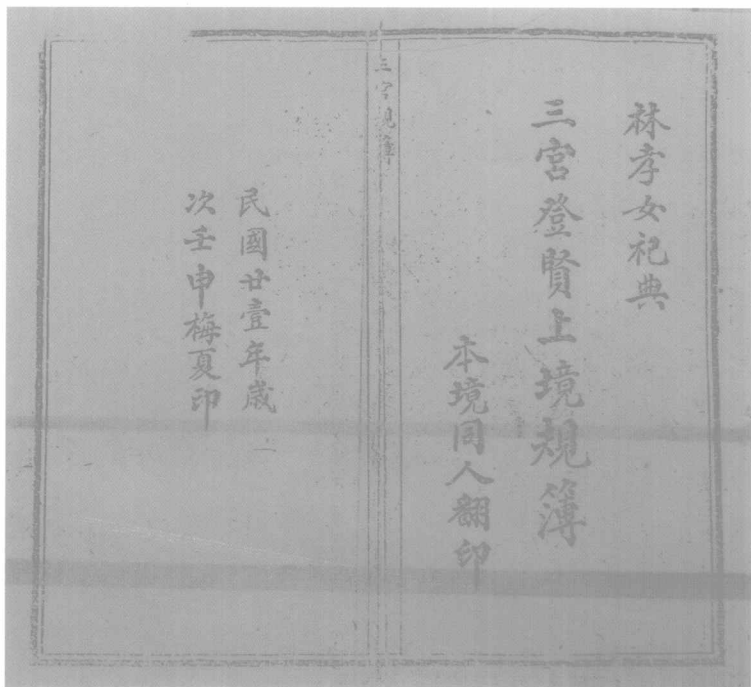 林孝女祀典
三宮登賢上境規簿
本境同人翻印
三宮規簿
民國廿壹年歲
次壬申梅夏印